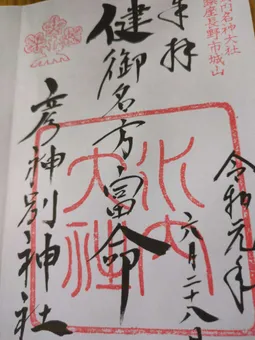 名神大社
長野市城山
奉拝
健御名方富命
彦神別神社
水内大社
令和元年
六月二十八日